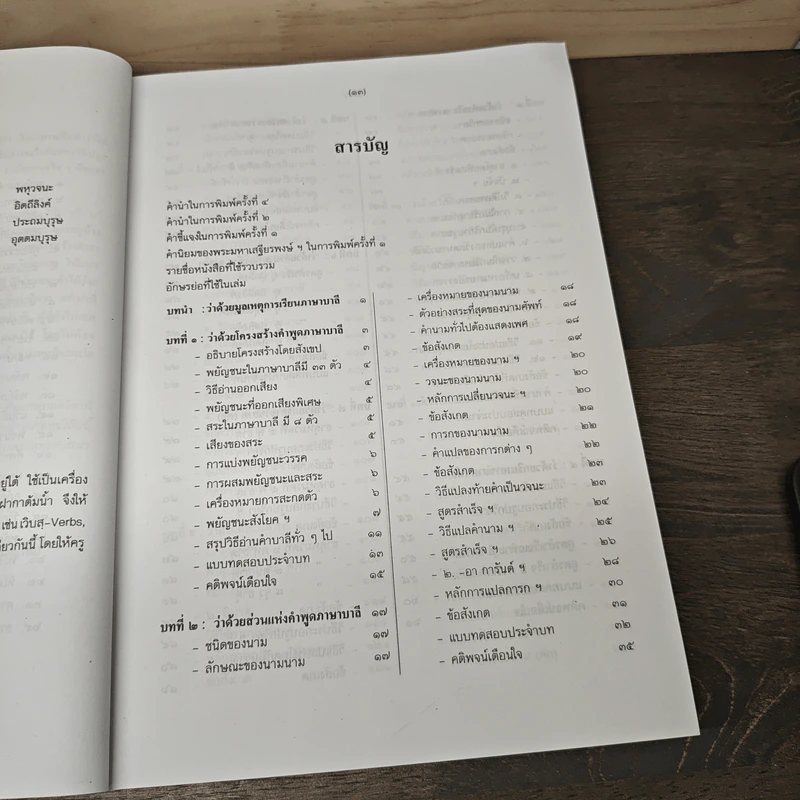 พหุวจนะ
อิตถีลิงค์
ประถมบุรุษ
อุตตมบุรุษ
ยู่ใต้ ใช้เป็นเครื่อง
ฝากาต้มน้ำ จึงให้
เช่น เว็บสฺ-Verbs,
ียวกันนี้ โดยให้ครู
(๑๓)
สารบัญ
คำนำในการพิมพ์ครั้งที่ ๔
คำนำในการพิมพ์ครั้งที่ ๒
คำชี้แจงในการพิมพ์ครั้งที่ ๑
คำนิยมของพระมหาเสฐียรพงษ์ ฯ ในการพิมพ์ครั้งที่ ๑
รายชื่อหนังสือที่ใช้รวบรวม
อักษรย่อที่ใช้ในเล่ม
บทนำ : ว่าด้วยมูลเหตุการเรียนภาษาบาลี ๑
บทที่ ๑ : ว่าด้วยโครงสร้างคำพูดภาษาบาลี ๓
- อธิบายโครงสร้างโดยสังเขป ๓
- พยัญชนะในภาษาบาลีมี ๓๓ ตัว ๔
- วิธีอ่านออกเสียง ๔
- พยัญชนะที่ออกเสียงพิเศษ ๕
- สระในภาษาบาลี มี ๘ ตัว ๕
- เสียงของสระ ๕
- การแบ่งพยัญชนะวรรค ๖
- การผสมพยัญชนะและสระ ๖
- เครื่องหมายการสะกดตัว ๖
- พยัญชนะสังโยค ฯ ๗
- สรุปวิธีอ่านคำบาลีทั่ว ๆ ไป ๑๑
- แบบทดสอบประจำบท ๑๓
- คติพจน์เตือนใจ ๑๕
บทที่ ๒ : ว่าด้วยส่วนแห่งคำพูดภาษาบาลี ๑๗
- ชนิดของนาม ๑๗
- ลักษณะของนามนาม ๑๗
- เครื่องหมายของนามนาม ๑๘
- ตัวอย่างสระที่สุดของนามศัพท์ ๑๘
- คำนามทั่วไปต้องแสดงเพศ ๑๘
- ข้อสังเกต ๑๙
- เครื่องหมายของนาม ฯ ๒๐
- วจนะของนามนาม ๒๐
- หลักการเปลี่ยนวจนะ ฯ ๒๐
- ข้อสังเกต ๒๑
- การกของนามนาม ๒๒
- คำแปลของการกต่าง ๆ ๒๒
- ข้อสังเกต ๒๓
- วิธีแปลงท้ายคำเป็นวจนะ ๒๓
- สูตรสำเร็จ ฯ ๒๔
- วิธีแปลคำนาม ฯ ๒๕
- สูตรสำเร็จ ฯ ๒๖
- ๒. -อา การันต์ ฯ ๒๘
- หลักการแปลการก ฯ ๓๐
- ข้อสังเกต ๓๑
- แบบทดสอบประจำบท ๓๒
- คติพจน์เตือนใจ ๓๕